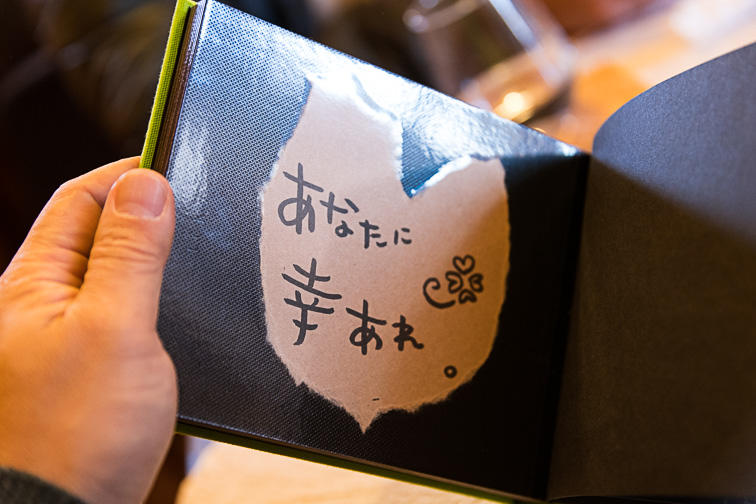 あなたに
幸あれ。